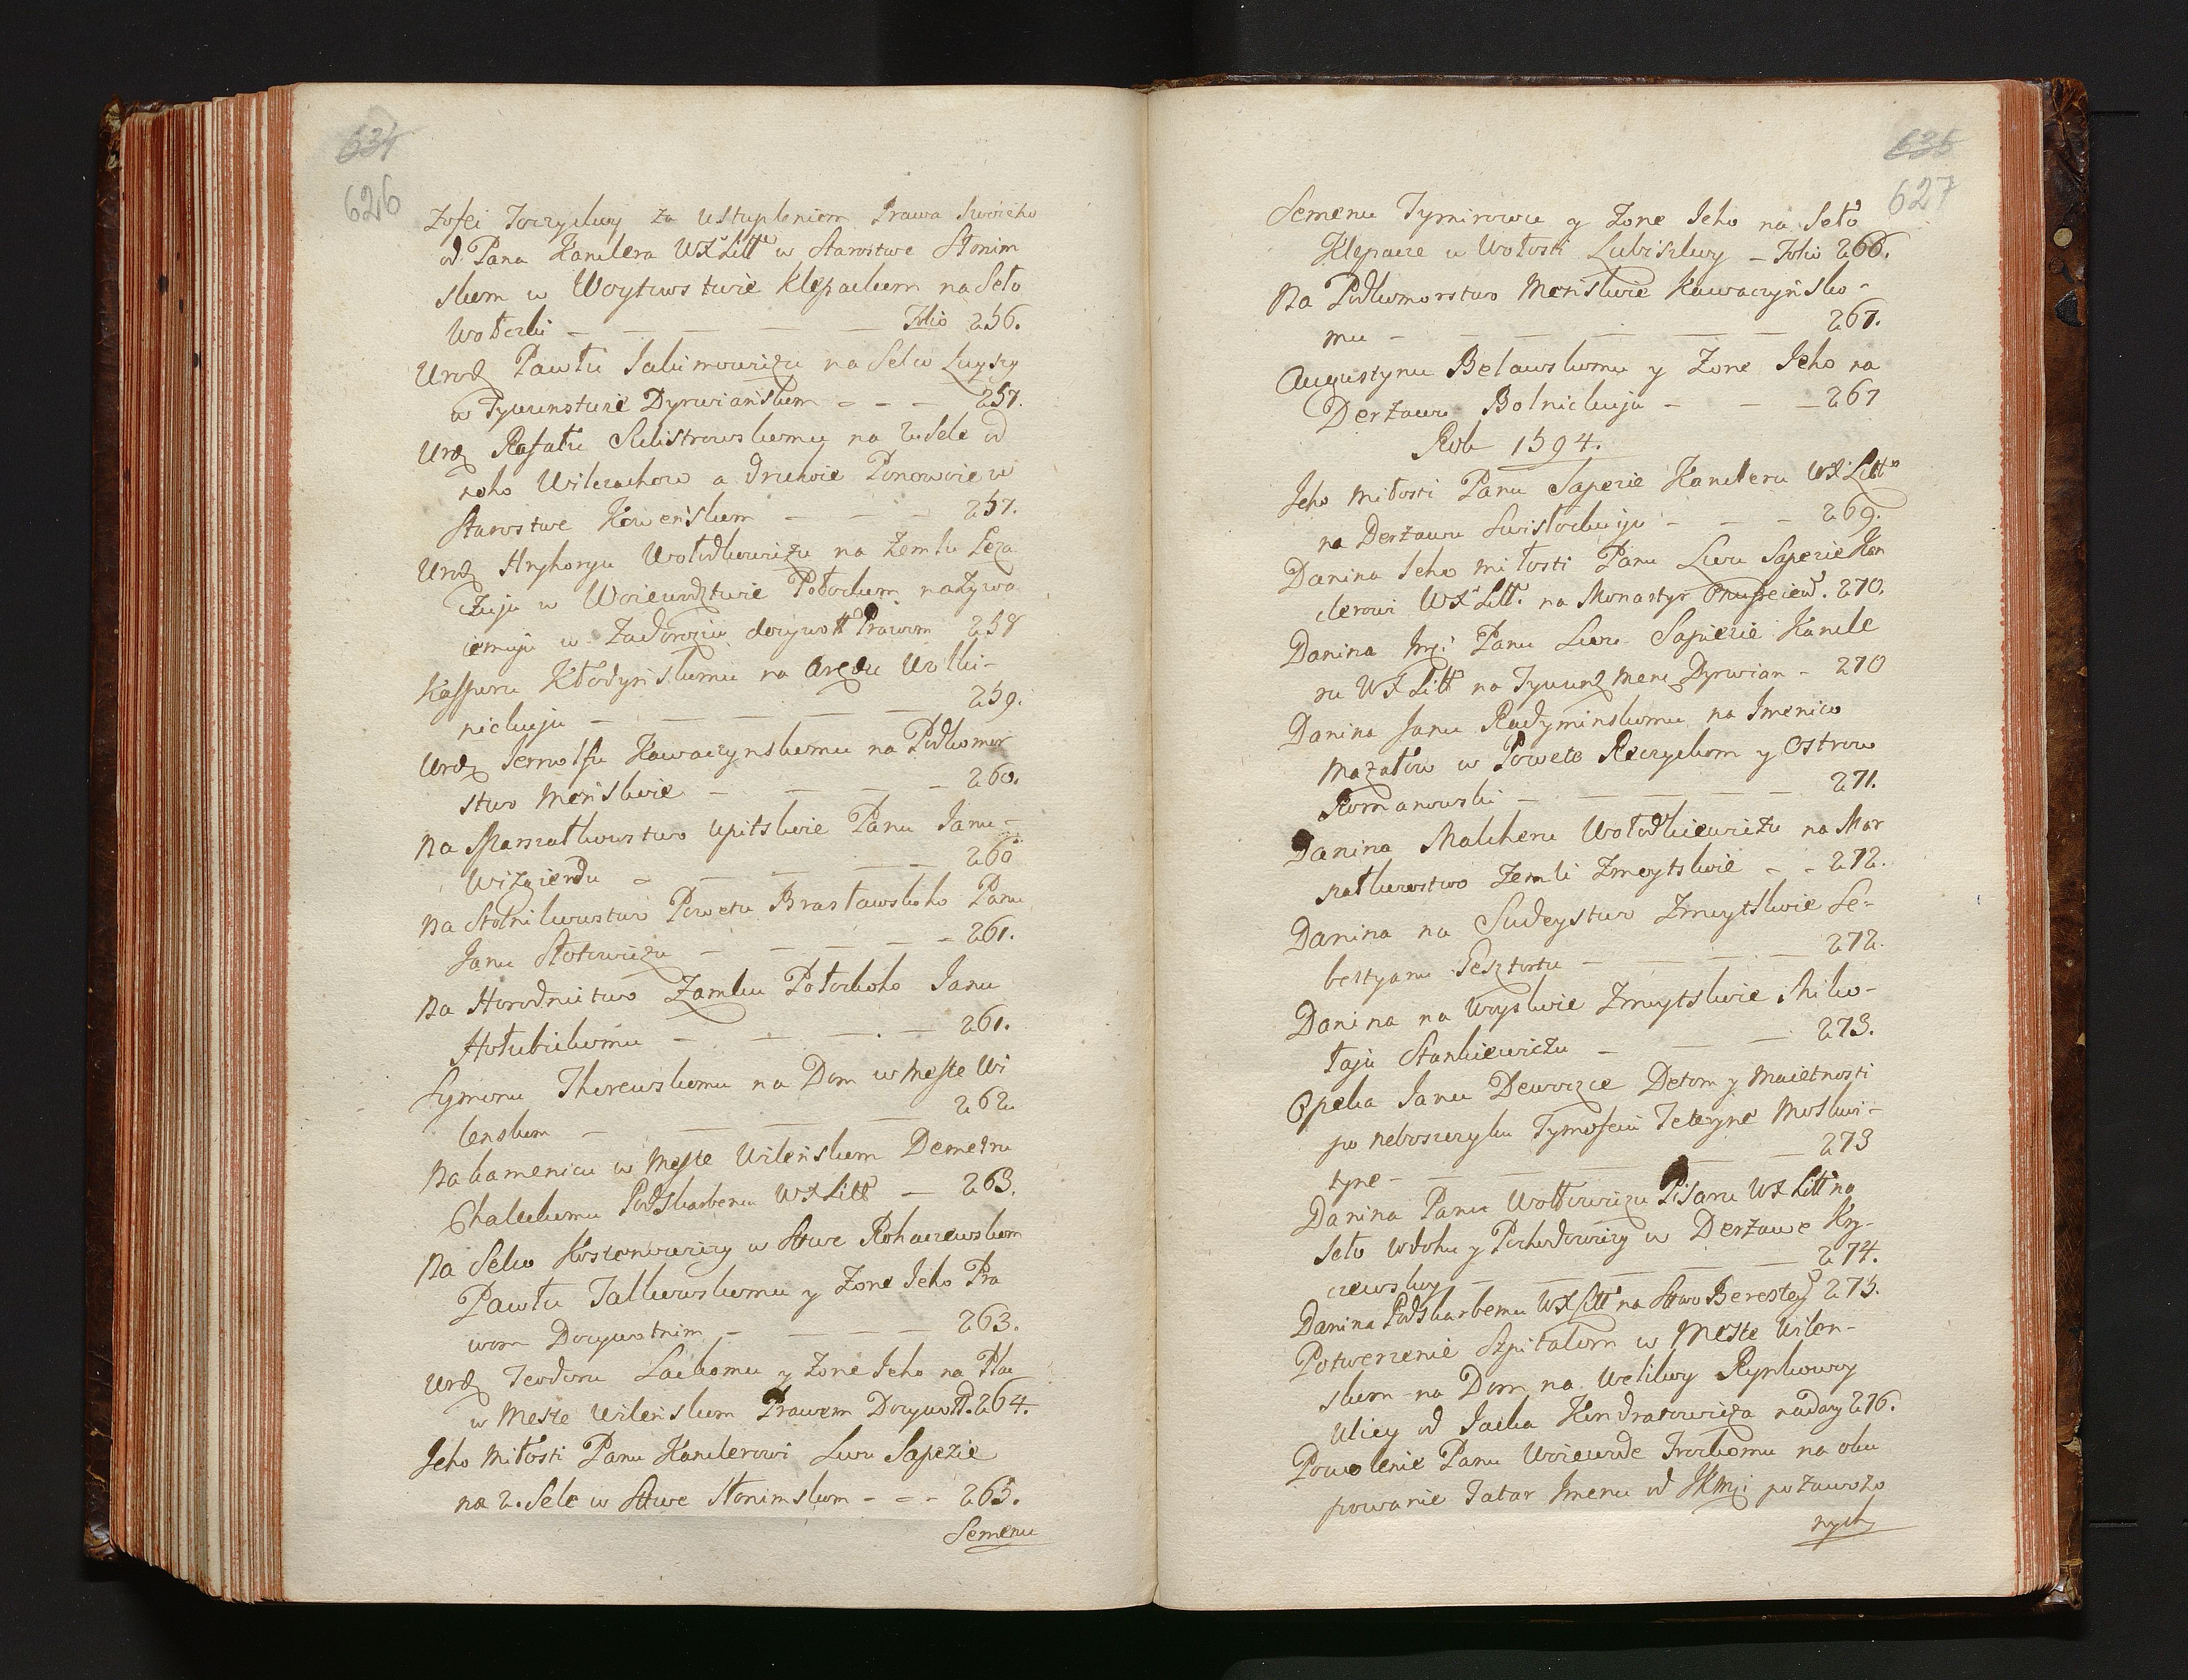 634
626
Zofei Toczyskoy za ustupleniem Prawa Swoieho
od Pana Kanclera WX Litt° w Starostwe Słonim
skom w Woytowstwie Klepaczkom na Seło
Wołczki — Folio 256.
Urdz Pawłu Jakimowiczu na Selco Luyszy
w Tywunstwie Dyrwianskom — 257.
Urdz Rafału Sulistrowskomu na 2. Sele od
noho Wilczachow a druhoie Ponowoie w
Starostwe Kowenskom — 257.
Urdz Hryhoryu Wołodkowiczu na Zemlu Leza
czuju w Woiewodztwie Połockom nazywa
iemuju w Zadorożiu dożywott Prawom 258
Kasparu Kłodynskomu na Aręndu Wolki-
nickuju — 259.
Urdz Jermołsu Kawaczynskomu na Podkomor
stwo Menskoie — 260.
Na Marszałkowstwo Upitskoie Panu Janu-
Wizgierdu — 260
Na Stolnikowstwo Powetu Brasławskoho Panu
Janu Kłotowiczu — 261.
Na Horodnictwo Zamku Połockoho Janu
Hołubickomu — 261.
Symonu Thorewskomu na Dom w Meste Wi
lenskom — 262
Na kamenicu w Meste Wilenskom Demetru
Chaleckomu Podskarbemu WX Litt — 263.
Na Selco Kostenowiczy w Sttwe Rohaczewskom
Pawłu Jałkowskomu y Zone Jeho Pra
wom Dożywotnim — 263.
Urdz Teodoru Lackomu y Zone Jeho na Plac
w Meste Wilenskom Prawom Dożywott. 264.
Jeho Miłosti Panu Kanclerowi Lwu Sapezie
na 2. Sele w Sttwe Słonimskom - - - 265.
Semenu
635
627
Semenu Tymirowu y Zone Jeho na Seło
Klepacze w Wołosti Lubiszkoy — Folio 266.
Na Podkomorstwo Menskoie Kawaczynsko-
mu — 267.
Augustynu Belawskomu y Zone Jeho na
Derzawu Bolnickuju — 267
Rok 1594.
Jeho Miłosti Panu Sapezie Kancleru WX Litt°
na Derzawu Swisłockuju — 269.
Danina Jeho Miłosti Panu Lwu Sapezie Kan
clerowi WX Litt. na Monastyr Onufreiew. 270.
Danina Jmci Panu Lwu Sapiezie Kancle
ru WX Litt na Tywunz Meno Dyrwian - 270
Danina Janu Radyminskomu na Imenico
Mazałow w Powete Reczyckom y Ostrow
Romanowski — 271.
Danina Malcheru Wołodkiewiczu na Mar
szałkowstwo Zemli Zmoytskoie - - 272.
Danina na Sudeystwo Zmoytskoie Se-
bestyanu Pesztortu — 272.
Danina na Woyskoie Zmoytskoie Miko-
łaju Stankiewiczu — 273.
Opeka Janu Deworzce Detom y Maietnosti
po neboszczyku Tymofeiu Teteryne Moskwi-
tyne — 273
Danina Panu Wołłowiczu Pisaru WX Litt na
Seło Wdoku y Pochodowiczy w Derzawe Kry-
czewskoy — 274.
Danina Podskarbemu WX Litt na Sttwo Berestey 275.
Potwerzenie Szpitalom w Meste Wilen-
skom na Dom na Welikoy Rynkowoy
Ulicy od Jacka Kondratowicza nadany 276.
Pozwolenie Panu Woiewode Trockomu na oku
powanie Tatar Imenu od JKMci pożałowa
nych